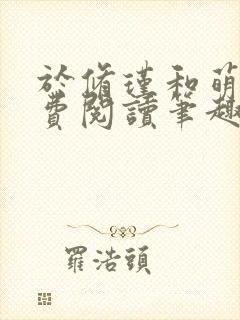 於脩瑾和萌
費閱讀筆趣
羅浩頭